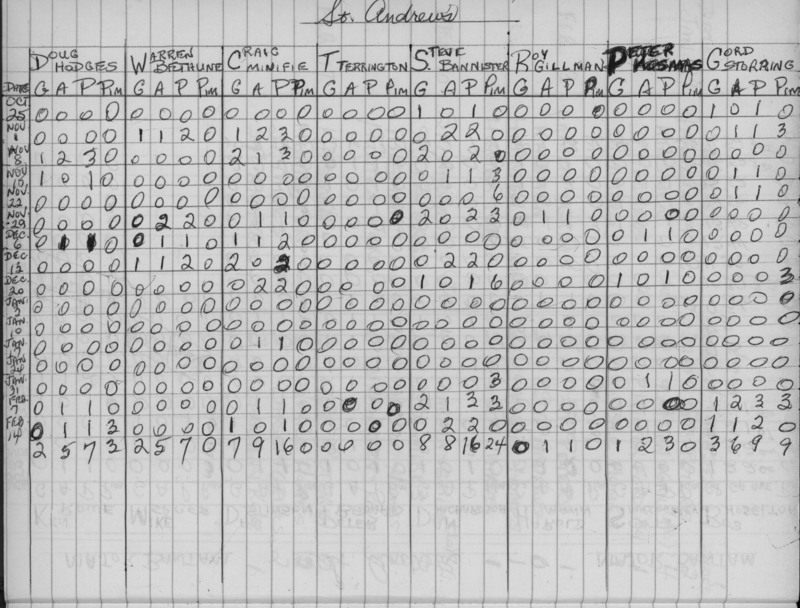 St. Andrews
DOUG HODGES WARREN BETHUNE CRAIG MINIFIE T TERRINGTON STEVE BANNISTER ROY GILLMAN PETER KOSMAS GORD STORRING
DATE G A P Pim G A P Pim G A P Pim G A P Pim G A P Pim G A P Pim G A P Pim G A P Pim
OCT 25 0 0 0 0 0 0 0 0 0 0 0 0 0 0 0 0 1 0 1 0 0 0 0 0 0 0 0 0 1 0 1 0
NOV 1 0 0 0 0 1 1 2 0 1 2 3 0 0 0 0 0 0 2 2 0 0 0 0 0 0 0 0 0 0 1 1 3
NOV 8 1 2 3 0 0 0 0 0 2 1 3 0 0 0 0 0 2 0 2 0 0 0 0 0 0 0 0 0 0 0 0 0
NOV 10 1 0 1 0 0 0 0 0 0 0 0 0 0 0 0 0 0 1 1 3 0 0 0 0 0 0 0 0 0 1 1 0
NOV. 22 0 0 0 0 0 0 0 0 0 0 0 0 0 0 0 0 0 0 0 6 0 0 0 0 0 0 0 0 0 1 1 0
NOV. 29 0 0 0 0 0 2 2 0 0 1 1 0 0 0 0 0 2 0 2 3 0 1 1 0 0 0 0 0 0 0 0 0
DEC 6 0 1 1 0 0 1 1 0 1 1 2 0 0 0 0 0 0 0 0 0 0 0 0 0 0 1 1 0 0 0 0 0
DEC 13 0 0 0 0 1 1 2 0 2 0 2 0 0 0 0 0 0 2 2 0 0 0 0 0 0 0 0 0 0 0 0 0
DEC. 20 0 0 0 0 0 0 0 0 0 2 2 0 0 0 0 0 1 0 1 6 0 0 0 0 1 0 1 0 0 0 0 3
JAN. 3 0 0 0 0 0 0 0 0 0 0 0 0 0 0 0 0 0 0 0 0 0 0 0 0 0 0 0 0 0 0 0 0
JAN 10 0 0 0 0 0 0 0 0 0 0 0 0 0 0 0 0 0 0 0 0 0 0 0 0 0 0 0 0 0 0 0 0
JAN 0 0 0 0 0 0 0 0 0 1 1 0 0 0 0 0 0 0 0 0 0 0 0 0 0 0 0 0 0 0 0 0
JAN 24 0 0 0 0 0 0 0 0 0 0 0 0 0 0 0 0 0 0 0 0 0 0 0 0 0 0 0 0 0 0 0 0
JAN. 31 0 0 0 0 0 0 0 0 0 0 0 0 0 0 0 0 0 0 0 3 0 0 0 0 0 1 1 0 0 0 0 0
FEB. 7 0 1 1 0 0 0 0 0 0 1 1 0 0 0 0 0 2 1 3 3 0 0 0 0 0 0 0 0 1 2 3 3
FEB 14 0 1 1 3 0 0 0 0 1 0 1 0 0 0 0 0 0 2 2 0 0 0 0 0 0 0 0 0 1 1 2 0
2 5 7 3 2 5 7 0 7 9 16 0 0 0 0 0 8 8 16 24 0 1 1 0 1 2 3 0 3 6 9 9